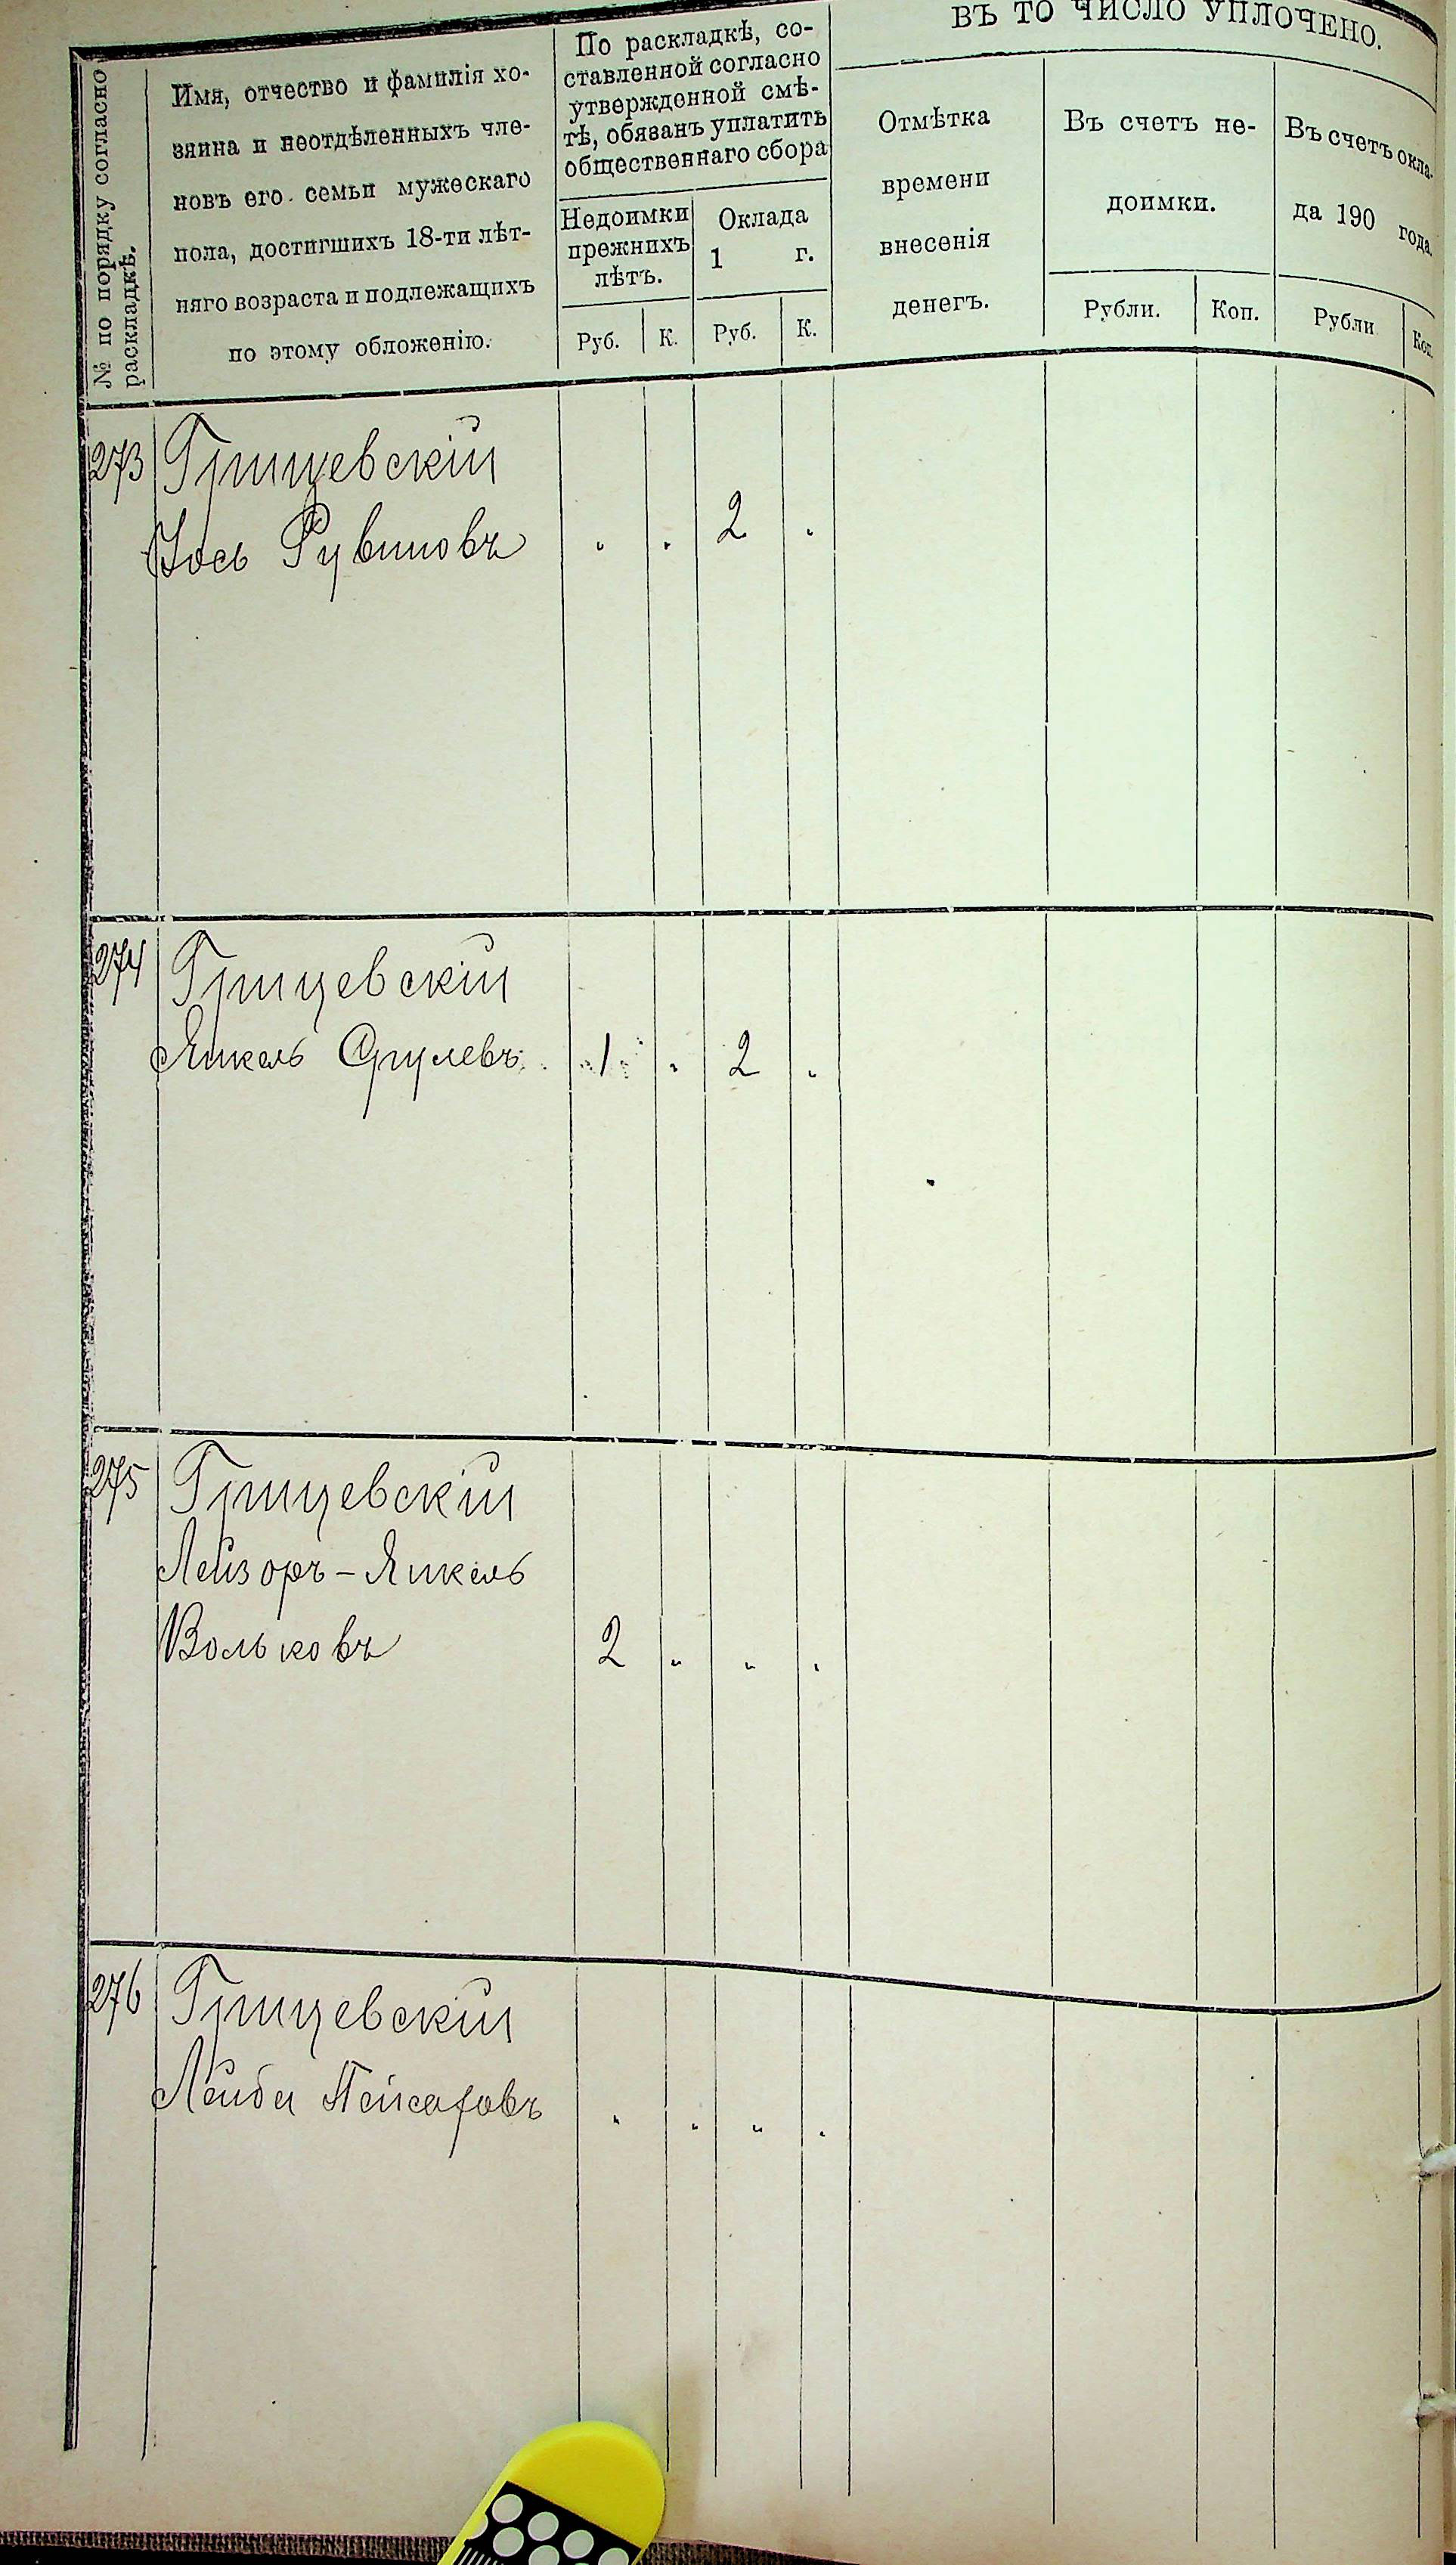 № по порядку согласно
раскладкѣ.
Имя, отчество и фамилія хо-
зяина и неотдѣленныхъ чле-
новъ его семьи мужескаго
пола, достигшихъ 18-ти лѣт-
няго возраста и подлежащихъ
по этому обложенію.
По раскладкѣ, со-
ставленной согласно
утвержденной смѣ-
тѣ, обязанъ уплатить
общественнаго сбора
Недоимки
прежнихъ
лѣтъ.
Руб. К.
Оклада
1 г.
Руб. К.
ВЪ ТО ЧИСЛО УПЛОЧЕНО.
Отмѣтка
времени
внесенія
денегъ.
Въ счетъ не-
доимки.
Рубли. Коп.
Въ счетъ окла-
да 190 года.
Рубли Коп.
273 Грицевскій
Іось Рувиновъ " " 2 "
274 Грицевскій
Янкель Срулевъ 1 " 2 "
275 Грицевскій
Лейзоръ-Янкель
Вольковъ 2 " " "
276 Грицевскій
Лейба Пейсаховъ " " " "